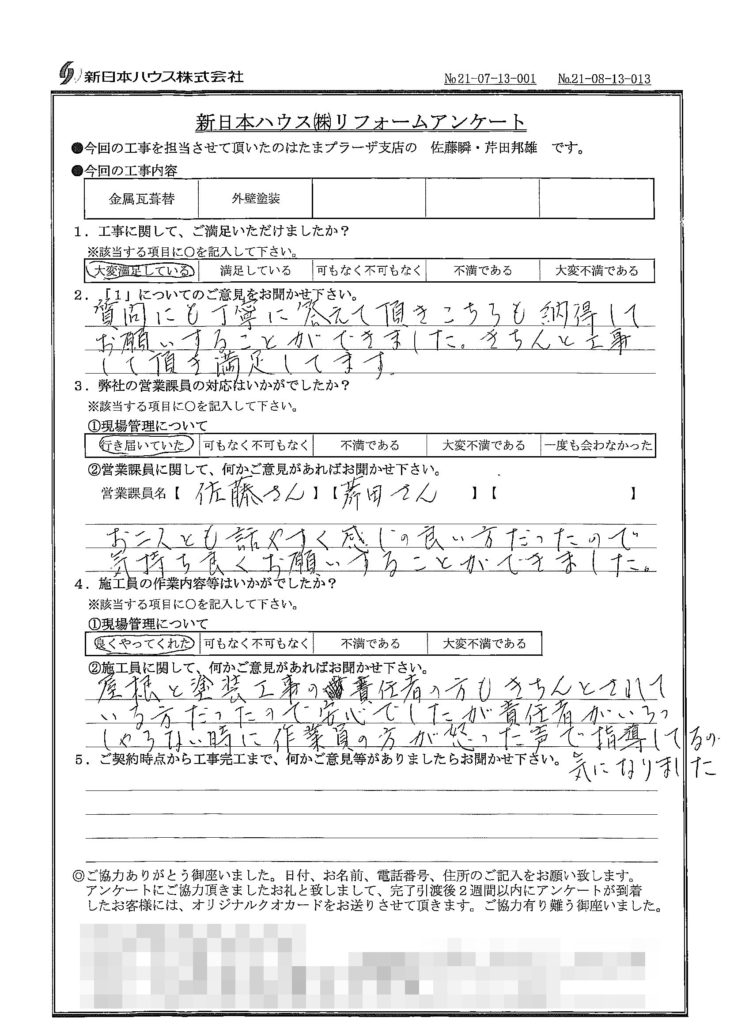 新日本ハウス株式会社 No21-07-13-001 No.21-08-13-013
新日本ハウス㈱リフォームアンケート
●今回の工事を担当させて頂いたのはたまプラーザ支店の 佐藤瞬・芹田邦雄 です。
●今回の工事内容
金属瓦葺替 外壁塗装
1．工事に関して、ご満足いただけましたか？
※該当する項目に○を記入して下さい。
大変満足している 満足している 可もなく不可もなく 不満である 大変不満である
2．「1」についてのご意見をお聞かせ下さい。
質問にも丁寧に答えて頂きこちらも納得して
お願いすることができました。きちんと工事
して頂き満足してます。
3．弊社の営業課員の対応はいかがでしたか？
※該当する項目に○を記入して下さい。
①現場管理について
行き届いていた 可もなく不可もなく 不満である 大変不満である 一度も会わなかった
②営業課員に関して、何かご意見があればお聞かせ下さい。
営業課員名【 佐藤さん 】【 芹田さん 】【 】
お二人とも話やすく感じの良い方だったので
気持ち良くお願いすることができました。
4．施工員の作業内容等はいかがでしたか？
※該当する項目に○を記入して下さい。
①現場管理について
良くやってくれた 可もなく不可もなく 不満である 大変不満である
②施工員に関して、何かご意見があればお聞かせ下さい。
屋根と塗装工事の責任者の方もきちんとされて
いる方だったので安心でしたが責任者がいらっ
しゃらない時に作業員の方が怒った声で指導してるの
気になりました
5．ご契約時点から工事完工まで、何かご意見等がありましたらお聞かせ下さい。
◎ご協力ありがとう御座いました。日付、お名前、電話番号、住所のご記入をお願い致します。
アンケートにご協力頂きましたお礼と致しまして、完了引渡後２週間以内にアンケートが到着
したお客様には、オリジナルクオカードをお送りさせて頂きます。ご協力有り難う御座いました。